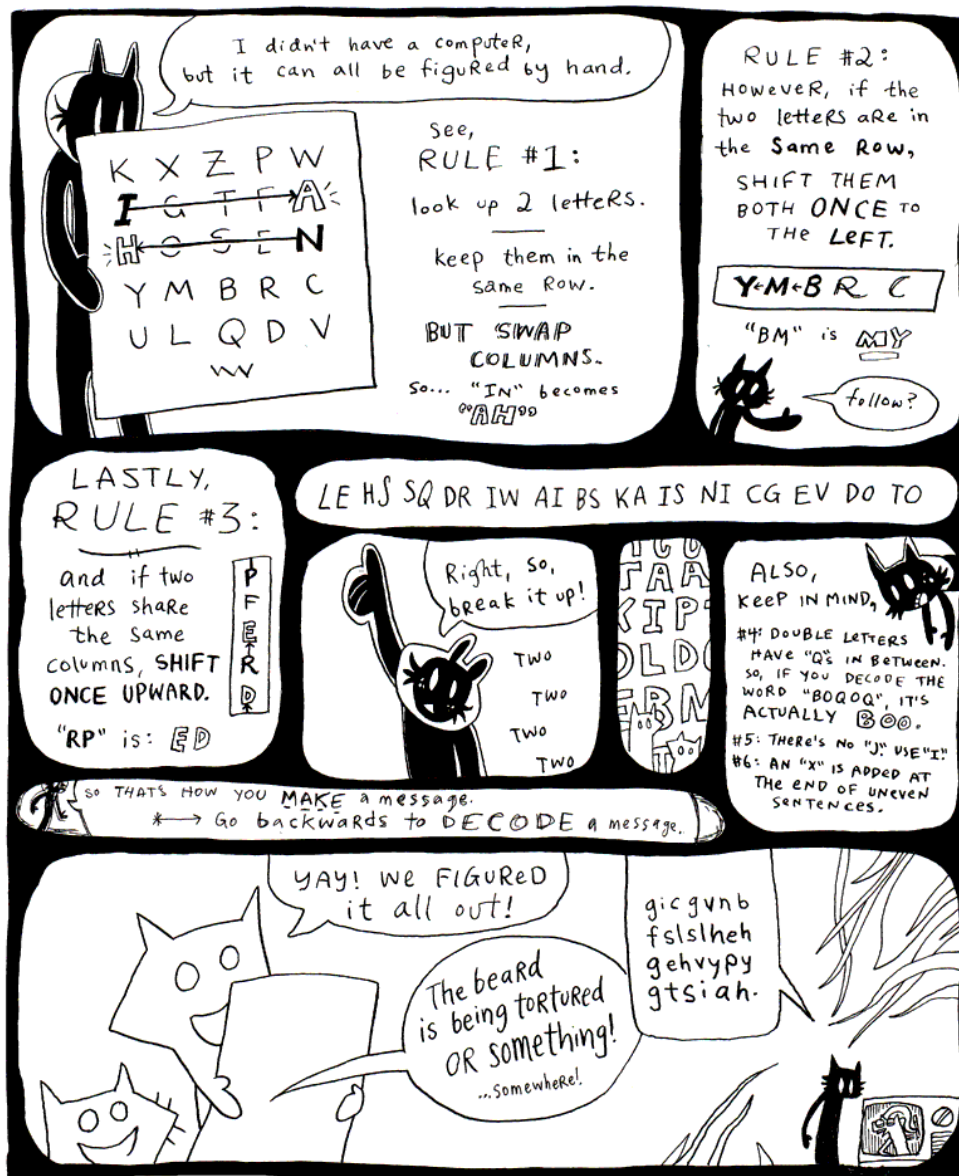 I didn't have a computer,
but it can all be figured by hand.
K X Z P W
I G T F A
H O S E N
Y M B R C
U L Q D V
See,
RULE #1:
look up 2 letters.
keep them in the
same row.
BUT SWAP
COLUMNS.
So... "IN" becomes
"AH"
RULE #2:
However, if the
two letters are in
the Same Row,
SHIFT THEM
BOTH ONCE TO
THE LEFT.
Y←M←B R C
"BM" is MY
follow?
LASTLY,
RULE #3:
and if two
letters share
the same
columns, SHIFT
ONCE UPWARD.
"RP" is: ED
P
F
E
R
D
LE HS SQ DR IW AI BS KA IS NI CG EV DO TO
Right, So,
break it up!
TWO
TWO
TWO
TWO
TAA
KIP
OLD
EBM
ALSO,
KEEP IN MIND,
#4: DOUBLE LETTERS
HAVE "Q"s IN BETWEEN.
SO, IF YOU DECODE THE
WORD "BOQOQ", IT'S
ACTUALLY BOO.
#5: THERE'S NO "J." USE "I."
#6: AN "X" IS ADDED AT
THE END OF UNEVEN
SENTENCES.
SO THAT'S HOW YOU MAKE a message.
*→ Go backwards to DECODE a message.
YAY! WE FIGURED
it all out!
The beard
is being tortured
OR something!
...somewhere!
gicgvnb
fslslheh
gehvypy
gtsiah.